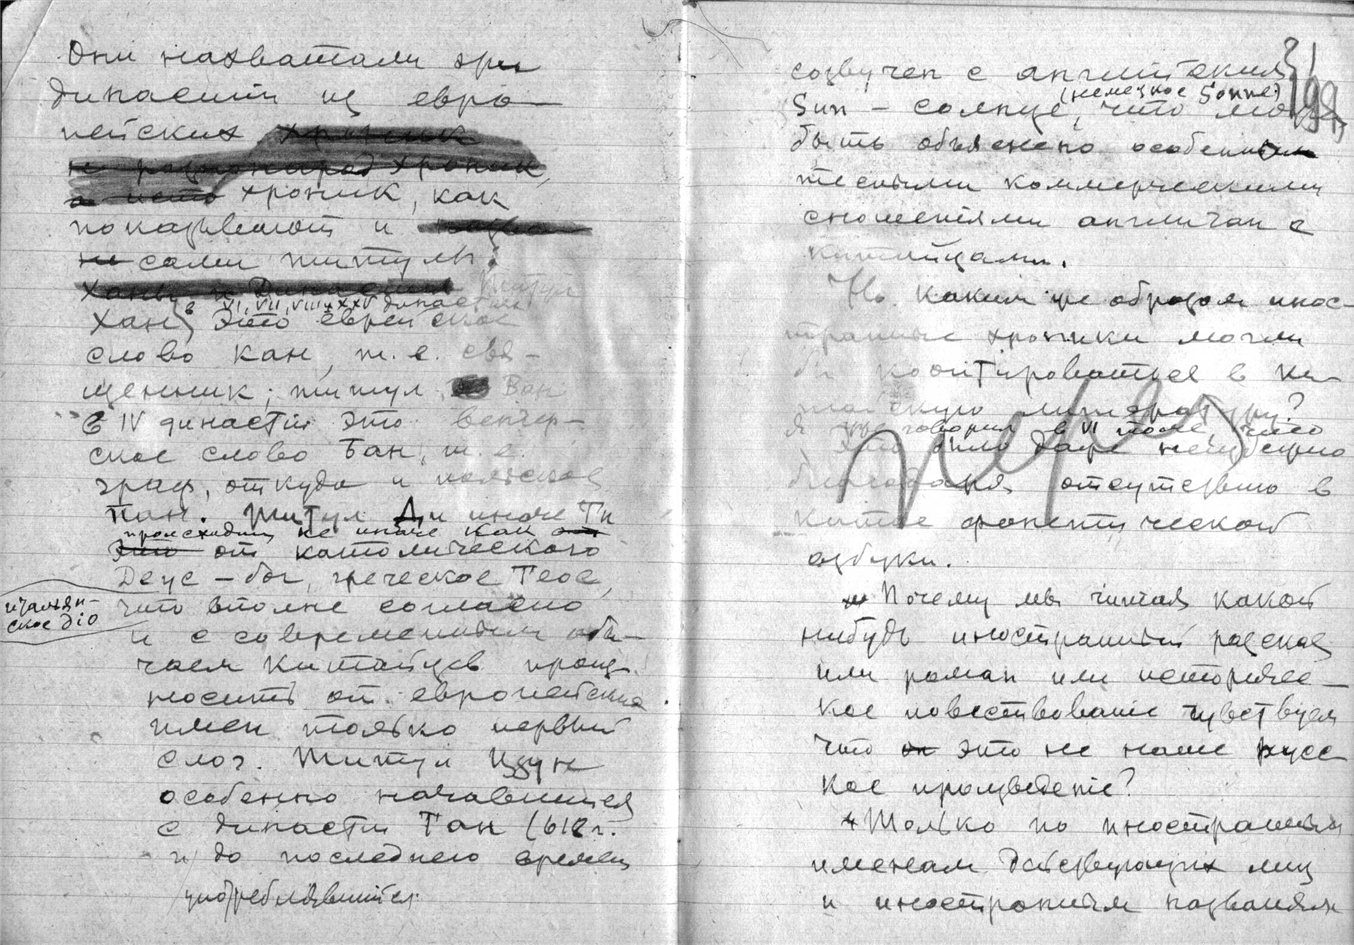 Они нахватали эти
династии из евро-
пейских
хроник, как
показывают и
сами титулы.
Титул
в VI, VII, VIII и XXV династиях
Хан это еврейское
слово кан, т. е. свя-
щенник; титул Ван
в IV династии это венгер-
ское слово Бан, т. е.
граф, откуда и польское
Пан. Титул Ди иначе Ти
происходит не иначе как
от католического
Деус — бог, греческое Теос,
итальян-
ское dio
что вполне согласно
и с современным обы-
чаем китайцев произ-
носить от европейских
имен только первый
слог. Титул Цзун
особенно начавшийся
с династии Тан (618 г.
и до последнего времен
употреблявшийся
созвучен с английским
(немецкое Sonne)
Sun — солнце, что может
быть объяснено особенно
тесными коммерческими
сношениями англичан с
китайцами.
Но каким же образом инос-
транные хроники могли
бы контироваться в ки-
тайскую литературу?
Я уже говорил в VI томе, что
это было даже неизбежно
благодаря отсутствию в
Китае фонетической
азбуки.
Почему мы читая какой
нибудь иностранный рассказ
или роман или историчес-
кое повествование чувствуем
что это не наше русс
кое произведение?
Только по иностранным
именам действующих лиц
и иностранным названиям